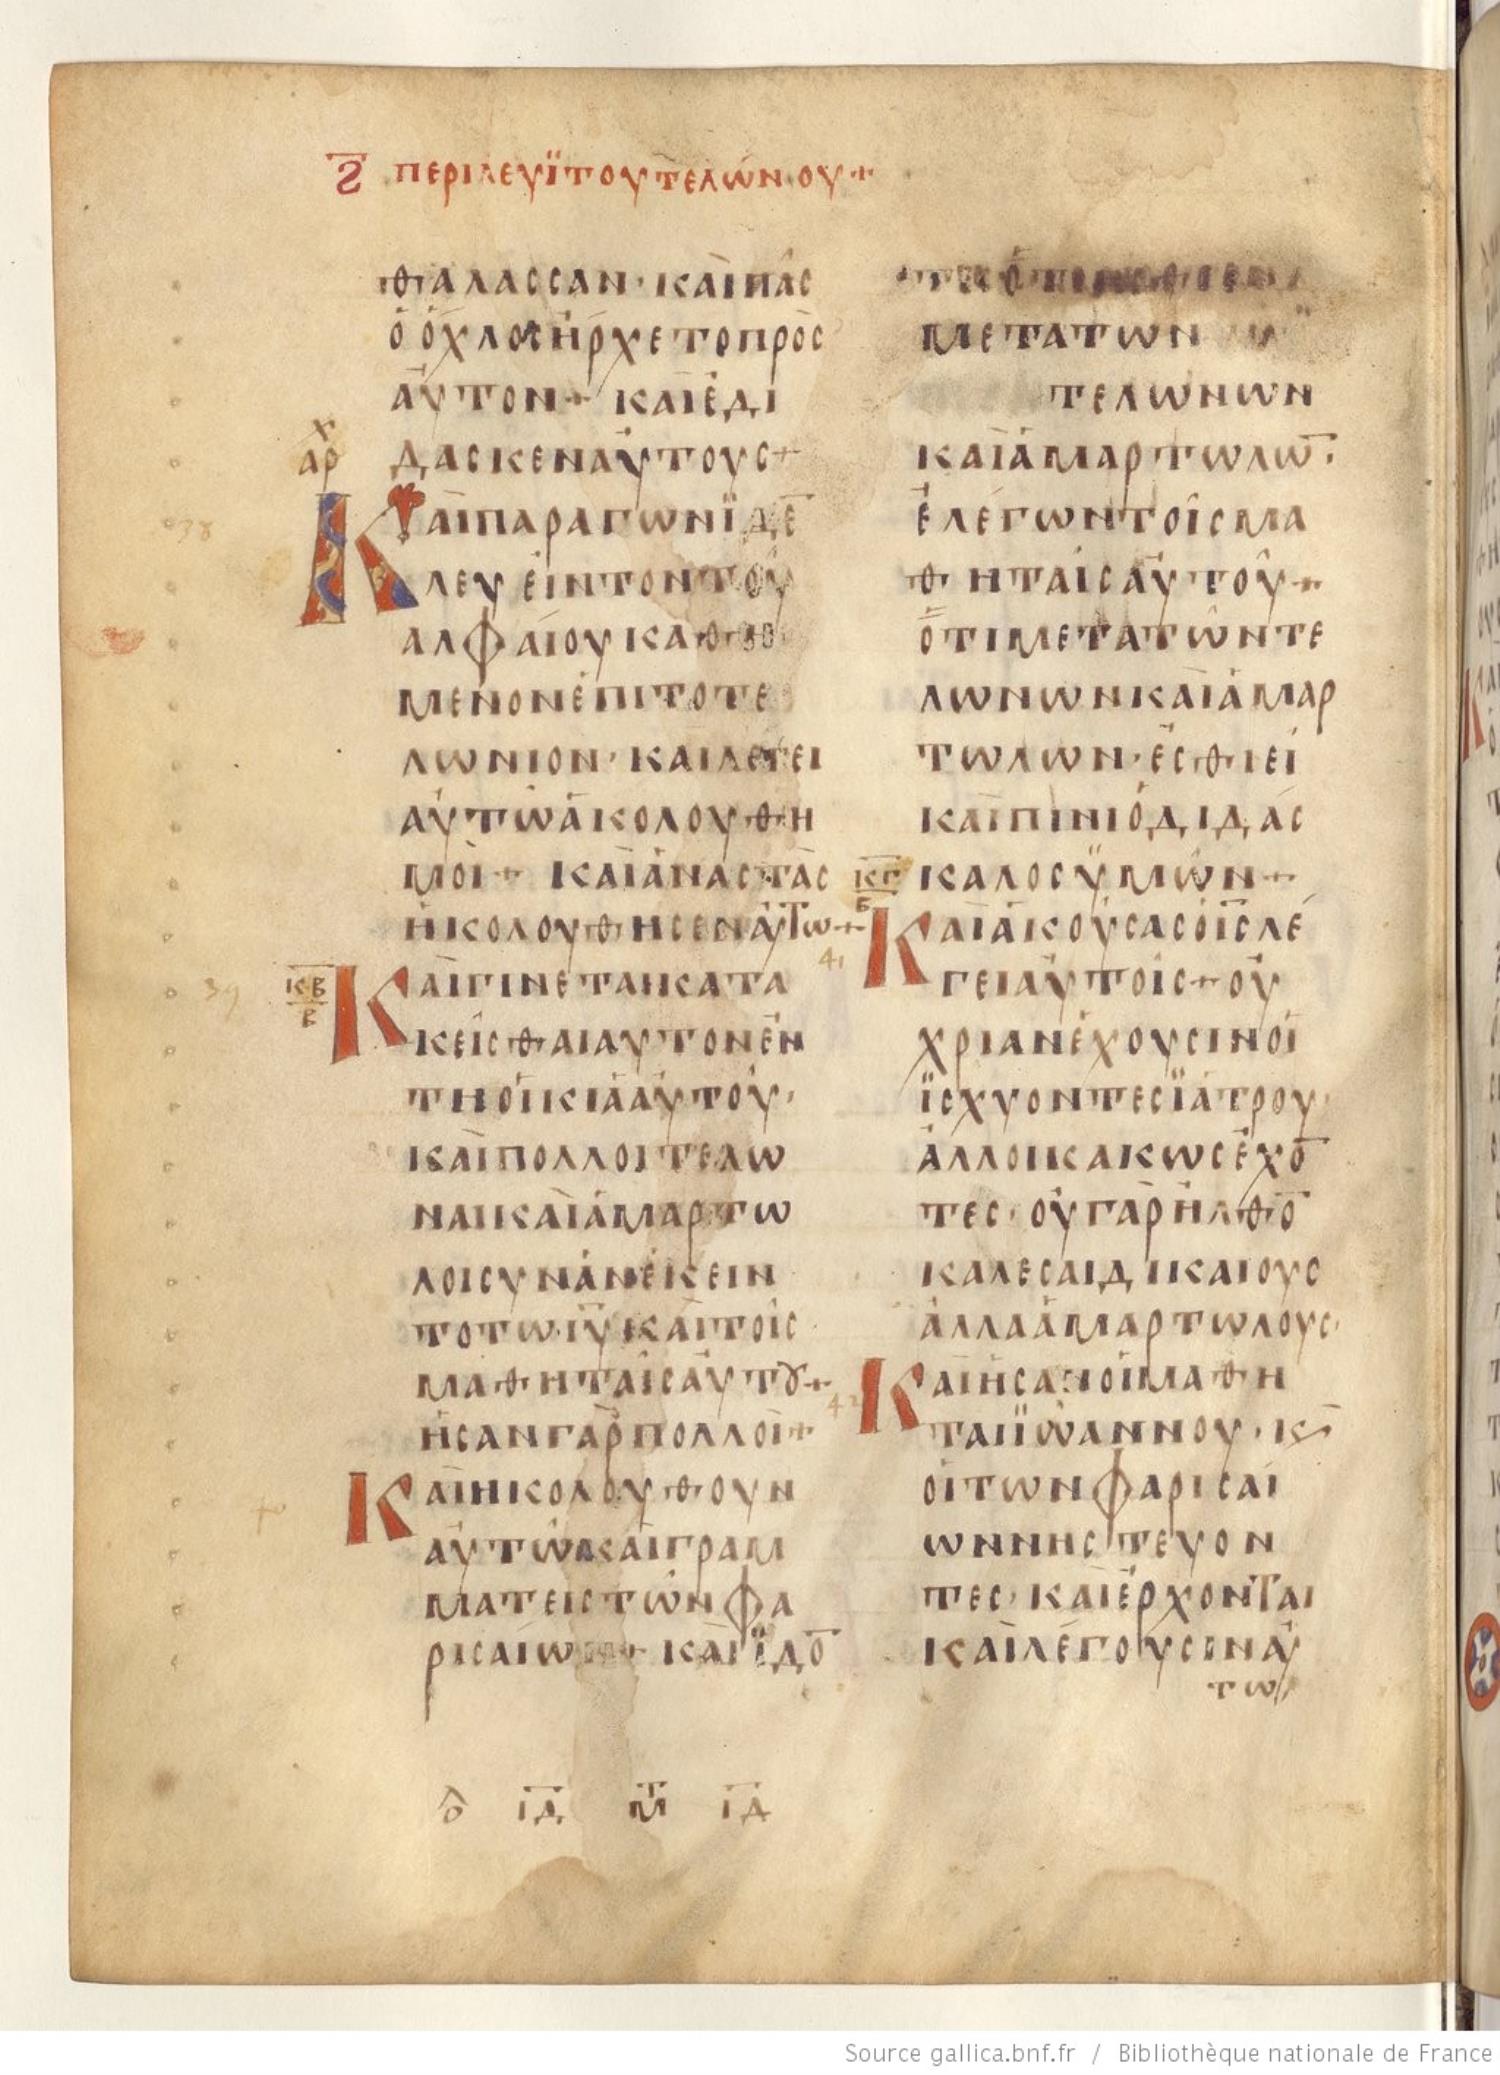 Ϛ ΠΕΡΙ ΛΕΥΪ ΤΟΥ ΤΕΛΩΝΟΥ+
ΘΑΛΑССΑΝ· ΚΑΙ ΠΑС
Ο ΟΧΛΟС ΗΡΧΕΤΟ ΠΡΟС
ΑΥΤΟΝ+ ΚΑΙ ΕΔΙ
ΔΑСΚΕΝ ΑΥΤΟΥС+
ΑΡΧ
ΚΑΙ ΠΑΡΑΓΩΝ ΪΔΕ̅
ΛΕΥΕΙΝ ΤΟΝ ΤΟΥ
ΑΛΦΑΙΟΥ ΚΑΘΗ
ΜΕΝΟΝ ΕΠΙ ΤΟ ΤΕ
ΛΩΝΙΟΝ· ΚΑΙ ΛΕΓΕΙ
ΑΥΤΩ ΑΚΟΛΟΥΘΗ
ΜΟΙ+ ΚΑΙ ΑΝΑСΤΑС
ΗΚΟΛΟΥΘΗСΕΝ ΑΥΤΩ+
39 ΚΒ Β
ΚΑΙ ΓΙΝΕΤΑΙ ΚΑΤΑ
ΚΕΙСΘΑΙ ΑΥΤΟΝ ΕΝ
ΤΗ ΟΙΚΙΑ ΑΥΤΟΥ·
ΚΑΙ ΠΟΛΛΟΙ ΤΕΛΩ
ΝΑΙ ΚΑΙ ΑΜΑΡΤΩ
ΛΟΙ СΥΝΑΝΕΚΕΙΝ
ΤΟ ΤΩ ΙΥ̅ ΚΑΙ ΤΟΙС
ΜΑΘΗΤΑΙС ΑΥΤȢ+
ΗСΑΝ ΓΑΡ ΠΟΛΛΟΙ+
ΚΑΙ ΗΚΟΛΟΥΘΟΥΝ
ΑΥΤΩ ΚΑΙ ΓΡΑΜ
ΜΑΤΕΙС ΤΩΝ ΦΑ
ΡΙСΑΙΩΝ+ ΚΑΙ ΪΔΟ̅
ΜΕΤΑ ΤΩΝ
ΤΕΛΩΝΩΝ
ΚΑΙ ΑΜΑΡΤΩΛΩ̅·
ΕΛΕΓΩΝ ΤΟΙС ΜΑ
ΘΗΤΑΙС ΑΥΤΟΥ+
ΟΤΙ ΜΕΤΑ ΤΩΝ ΤΕ
ΛΩΝΩΝ ΚΑΙ ΑΜΑΡ
ΤΩΛΩΝ· ΕСΘΙΕΙ
ΚΑΙ ΠΙΝΙ Ο ΔΙΔΑС
ΚΑΛΟС ΫΜΩΝ+
41 ΚΓ Β
ΚΑΙ ΑΚΟΥСΑС Ο ΙС̅ ΛΕ
ΓΕΙ ΑΥΤΟΙС+ ΟΥ
ΧΡΙΑΝ ΕΧΟΥСΙΝ ΟΙ
ΪСΧΥΟΝΤΕС ΪΑΤΡΟΥ·
ΑΛΛ ΟΙ ΚΑΚΩС ΕΧΟ̅
ΤΕС· ΟΥ ΓΑΡ ΗΛΘΟ̅
ΚΑΛΕСΑΙ ΔΙΚΑΙΟΥС
ΑΛΛΑ ΑΜΑΡΤΩΛΟΥС·
42
ΚΑΙ ΗСΑΝ ΟΙ ΜΑΘΗ
ΤΑΙ ΪΩΑΝΝΟΥ· Κϛ
ΟΙ ΤΩΝ ΦΑΡΙСΑΙ
ΩΝ ΝΗСΤΕΥΟΝ
ΤΕС· ΚΑΙ ΕΡΧΟΝΤΑΙ
ΚΑΙ ΛΕΓΟΥСΙΝ ΑΥ
ΤΩ
ΙΔ̅ Μ ΙΔ̅
Source gallica.bnf.fr / Bibliothèque nationale de France